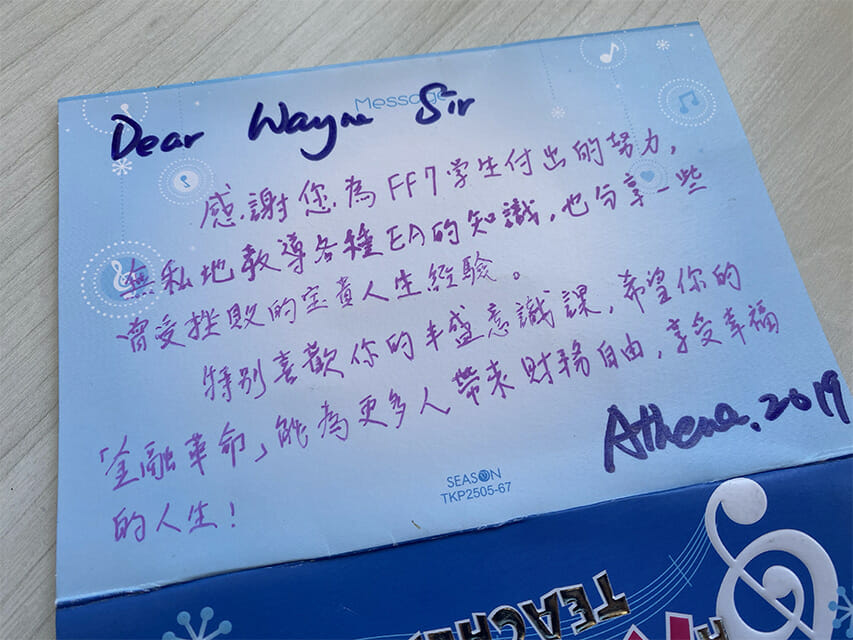 Message
Dear Wayne Sir
感謝您為FF7學生付出的努力，
無私地教導各種EA的知識，也分享一些
曾受挫敗的宝貴人生經驗。
特別喜歡你的丰盛意識課，希望你的
「金融革命」能為更多人帶來財務自由，享受幸福
的人生！
Athena, 2019
SEASON
TKP2505-67
TEACHE